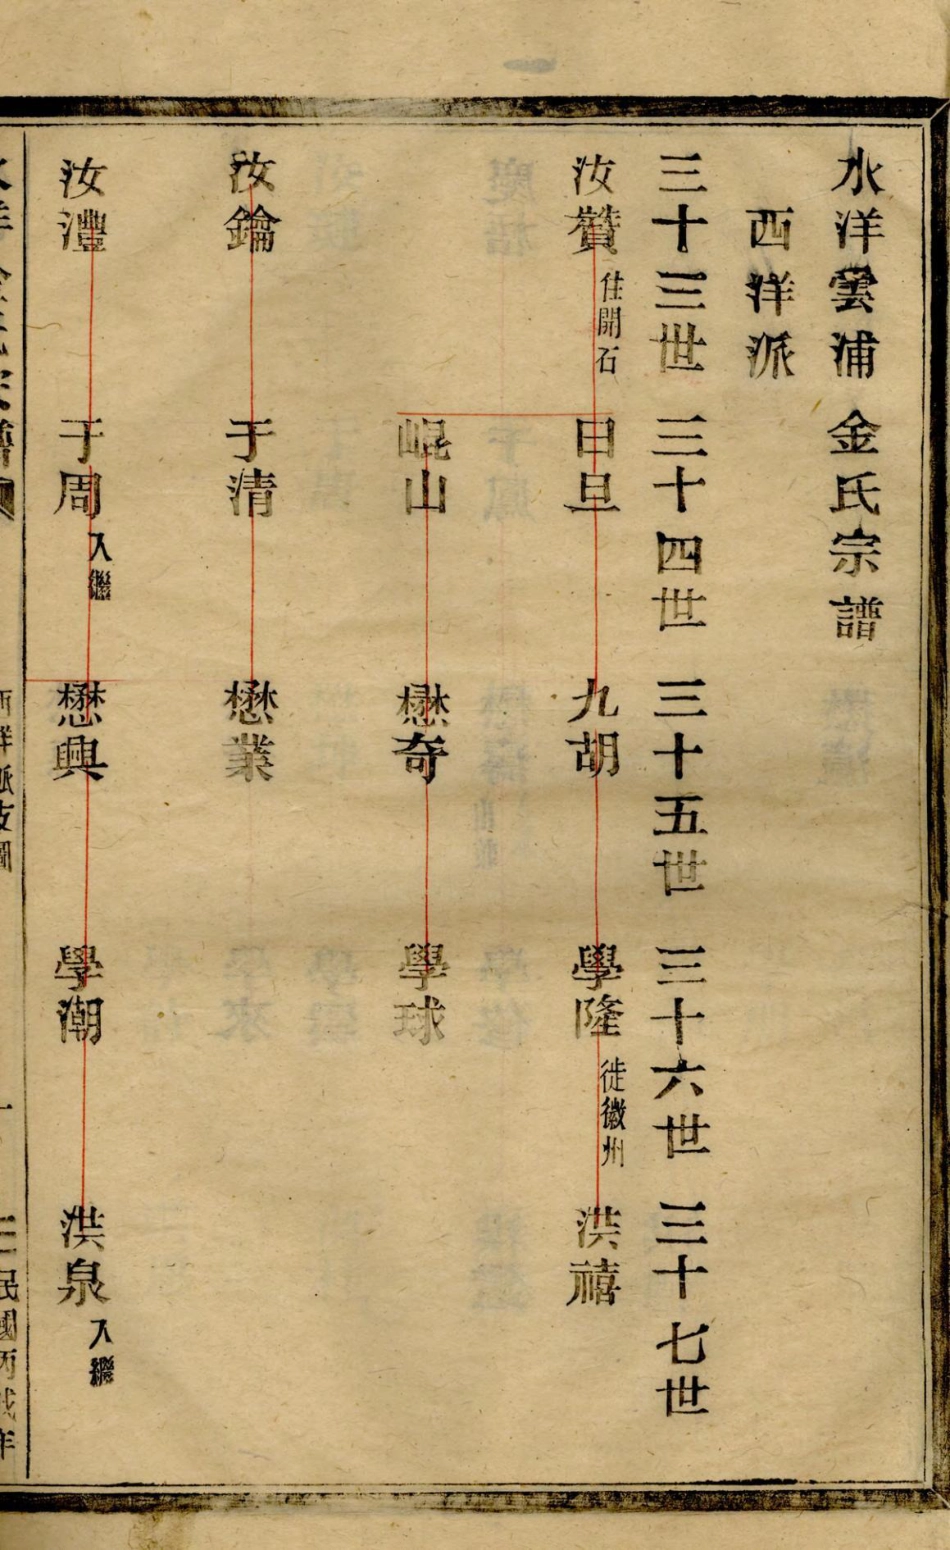 水洋雲浦金氏宗譜
西洋派
三十三世 三十四世 三十五世 三十六世 三十七世
汝贊 住開石 日旦 九胡 學隆 徙徽州 洪禧
崐山 懋奇 學球
汝鑰 于清 懋業
汝灃 于周 入繼 懋興 學潮 洪泉 入繼
西洋派支圖
民國丙戌年